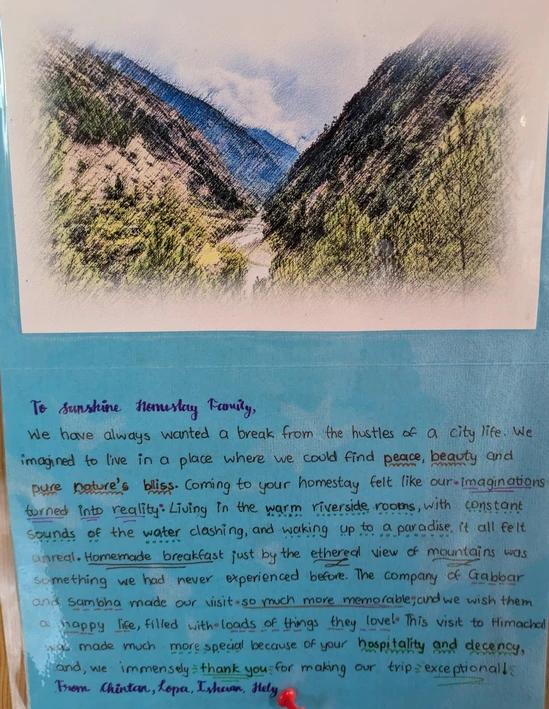 To Sunshine Homestay Family,
We have always wanted a break from the hustles of a city life. We
imagined to live in a place where we could find peace, beauty and
pure nature's bliss. Coming to your homestay felt like our imaginations
turned into reality. Living in the warm riverside rooms, with constant
sounds of the water clashing, and waking up to a paradise, it all felt
unreal. Homemade breakfast just by the ethereal view of mountains was
something we had never experienced before. The company of Gabbar
and Sambha made our visit so much more memorable, and we wish them
a happy life, filled with loads of things they love! This visit to Himachal
was made much more special because of your hospitality and decency,
and, we immensely thank you for making our trip exceptional!
From Chintan, Lopa, Ishaan, Hely